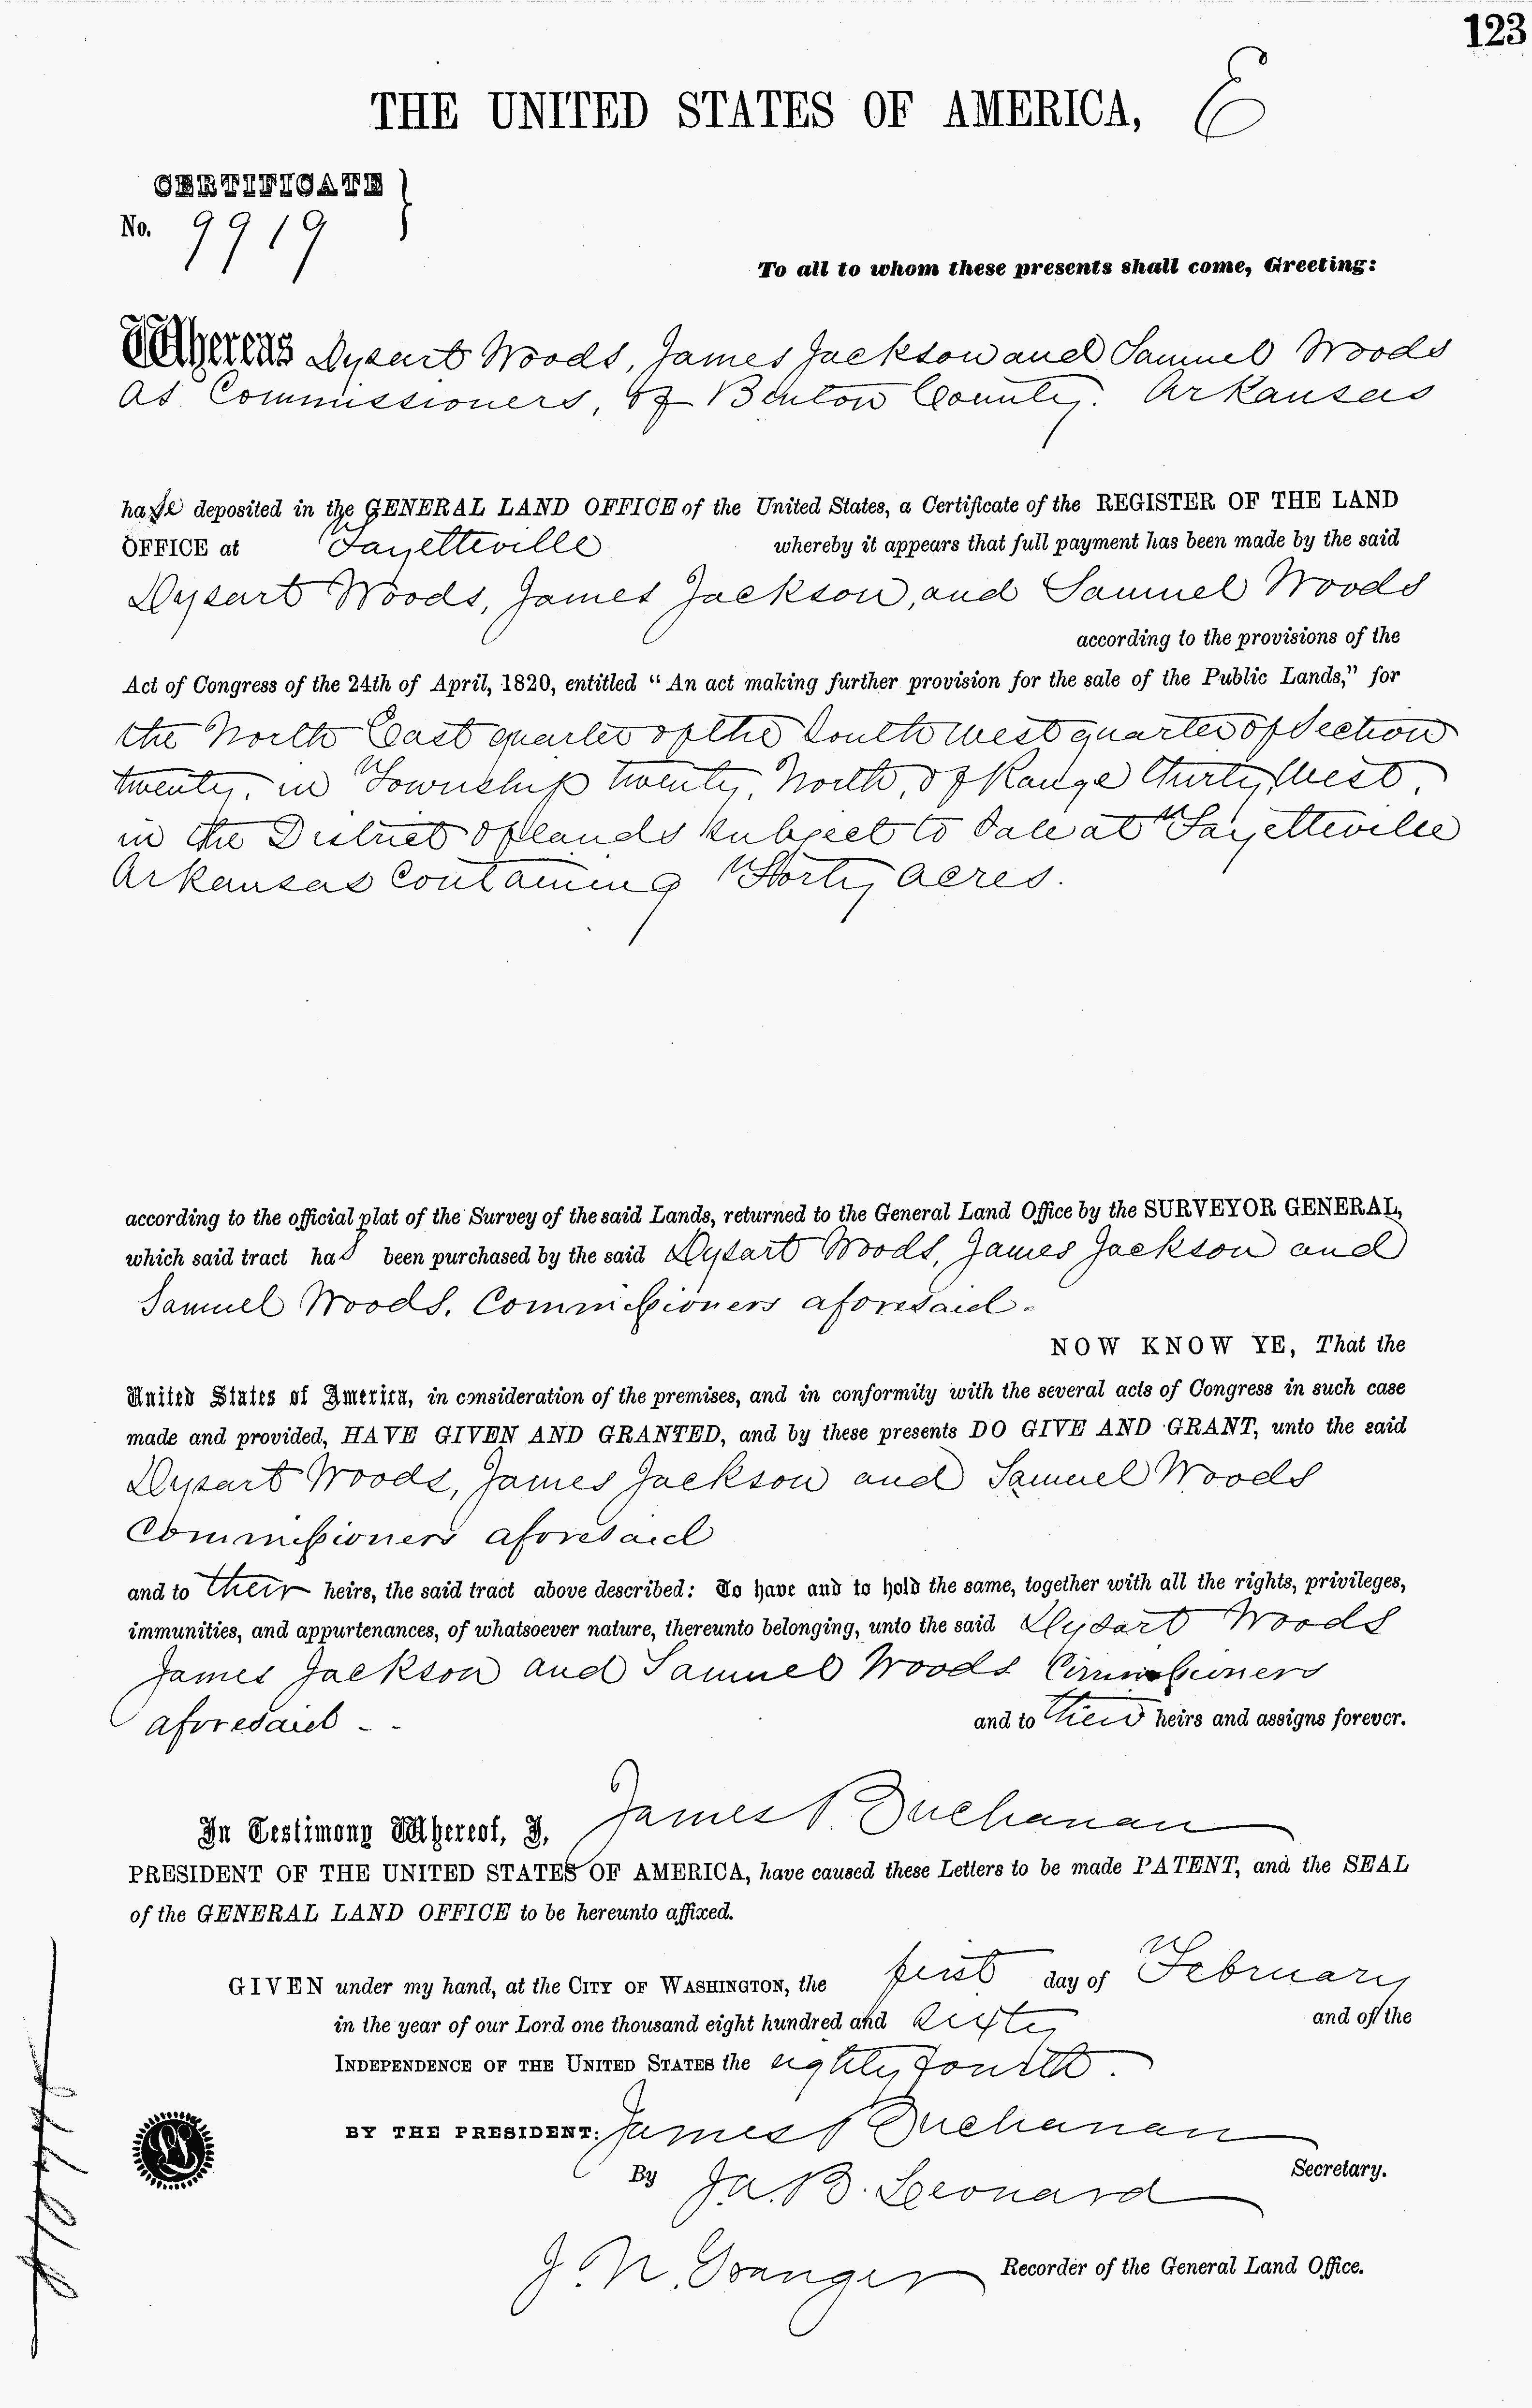 123
THE UNITED STATES OF AMERICA, E
CERTIFICATE
No. 9919
To all to whom these presents shall come, Greeting:
Whereas Dysart Woods, James Jackson and Samuel Woods
As Commissioners, of Benton County. Arkansas
have deposited in the GENERAL LAND OFFICE of the United States, a Certificate of the REGISTER OF THE LAND
OFFICE at Fayetteville whereby it appears that full payment has been made by the said
Dysart Woods, James Jackson, and Samuel Woods
according to the provisions of the
Act of Congress of the 24th of April, 1820, entitled "An act making further provision for the sale of the Public Lands," for
the North East quarter of the South West quarter of Section
twenty, in Township twenty, North, of Range thirty, West,
in the District of lands subject to Sale at Fayetteville
Arkansas Containing Forty acres.
according to the official plat of the Survey of the said Lands, returned to the General Land Office by the SURVEYOR GENERAL,
which said tract has been purchased by the said Dysart Woods, James Jackson and
Samuel Woods. Commissioners aforesaid.
NOW KNOW YE, That the
United States of America, in consideration of the premises, and in conformity with the several acts of Congress in such case
made and provided, HAVE GIVEN AND GRANTED, and by these presents DO GIVE AND GRANT, unto the said
Dysart Woods, James Jackson and Samuel Woods
Commissioners aforesaid
and to their heirs, the said tract above described: To have and to hold the same, together with all the rights, privileges,
immunities, and appurtenances, of whatsoever nature, thereunto belonging, unto the said Dysart Woods
James Jackson and Samuel Woods Commissioners
aforesaid - - and to their heirs and assigns forever.
In Testimony Whereof, I, James Buchanan
PRESIDENT OF THE UNITED STATES OF AMERICA, have caused these Letters to be made PATENT, and the SEAL
of the GENERAL LAND OFFICE to be hereunto affixed.
GIVEN under my hand, at the CITY OF WASHINGTON, the first day of February
in the year of our Lord one thousand eight hundred and sixty and of the
INDEPENDENCE OF THE UNITED STATES the eighty fourth.
BY THE PRESIDENT: James Buchanan
By Ja. B. Leonard Secretary.
J. N. Granger Recorder of the General Land Office.